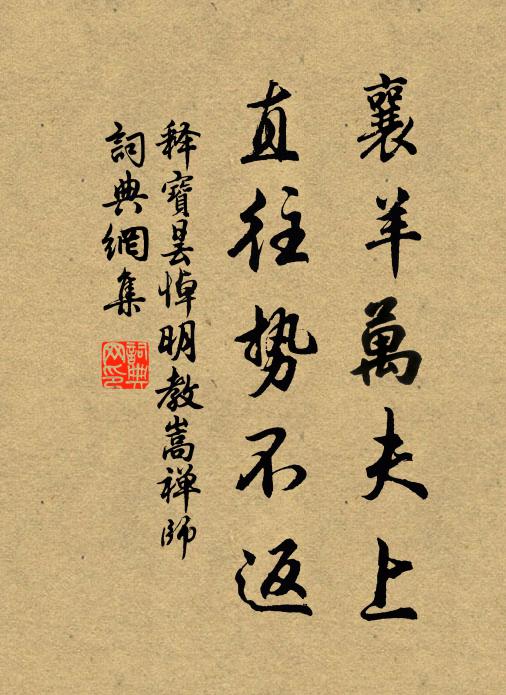 襄羊萬夫上
直往势不返
释寶曇悼明教嵩禅师
詞典網集
詞典网印